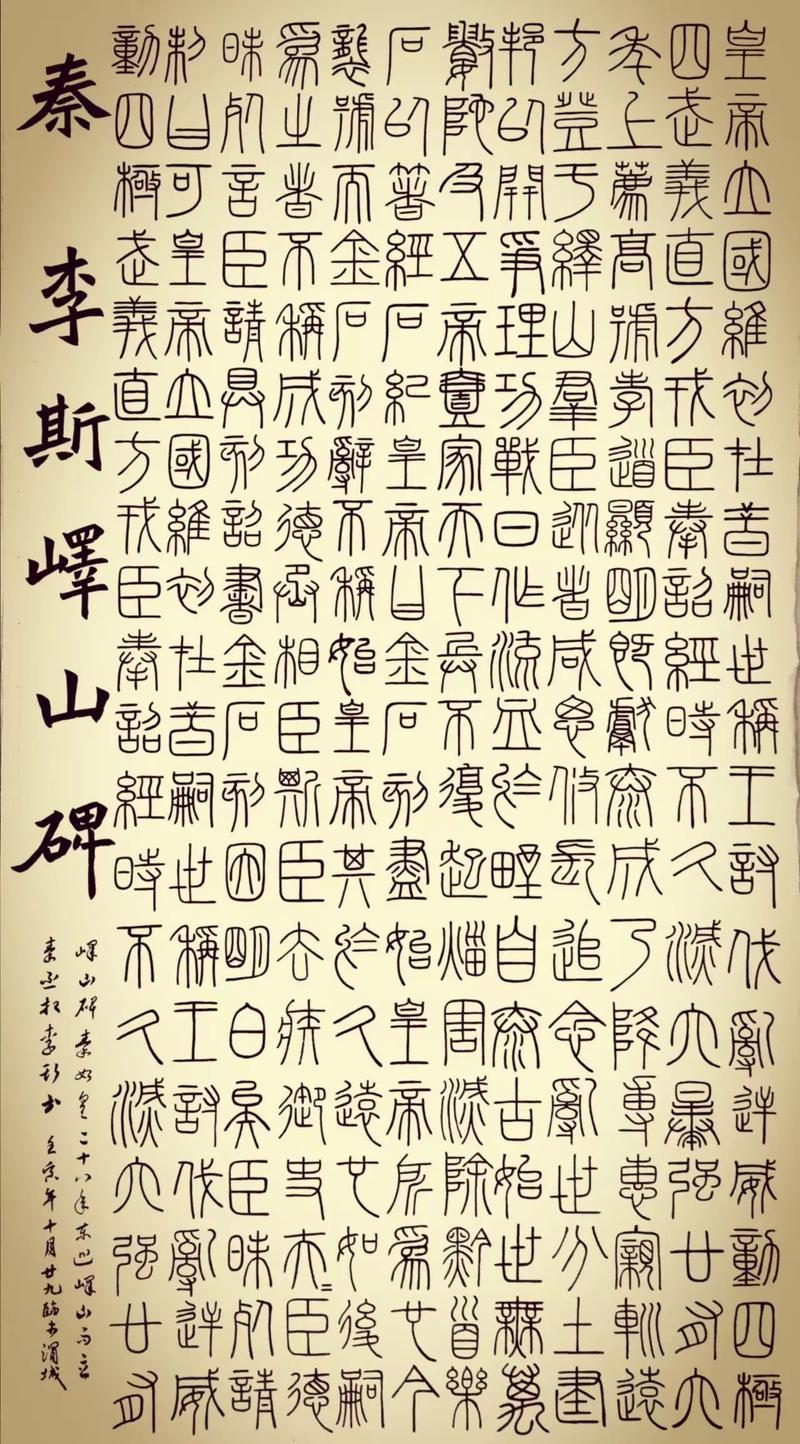 皇帝立國維初在昔嗣世稱王討伐亂逆威動四極
四武義直方戎臣奉詔經時不久滅六暴強廿有六
年上薦高號孝道顯明既獻泰成乃降專惠親巡遠
方登于繹山羣臣從者咸思攸長追念亂世分土建
邦以開爭理功戰日作流血於野自泰古始世無萬
數陀及五帝壹家天下兵不復起災害滅除黔首樂
石以著經石紀皇帝曰金石刻盡始皇帝所為也今
襲號而金石刻辭不稱始皇帝其於久遠也如後嗣
為之者不稱成功德丞相臣斯臣去疾御史夫=臣德
昧死言臣請具刻詔書金石刻因明白矣臣昧死請
制曰可皇帝立國維初在昔嗣世稱王討伐亂逆威
動四極武義直方戎臣奉詔經時不久滅六強廿有
秦李斯嶧山碑
嶧山碑秦始皇二十八年東巡嶧山而立
秦丞相李斯書 壬寅年十月廿九臨書渭城